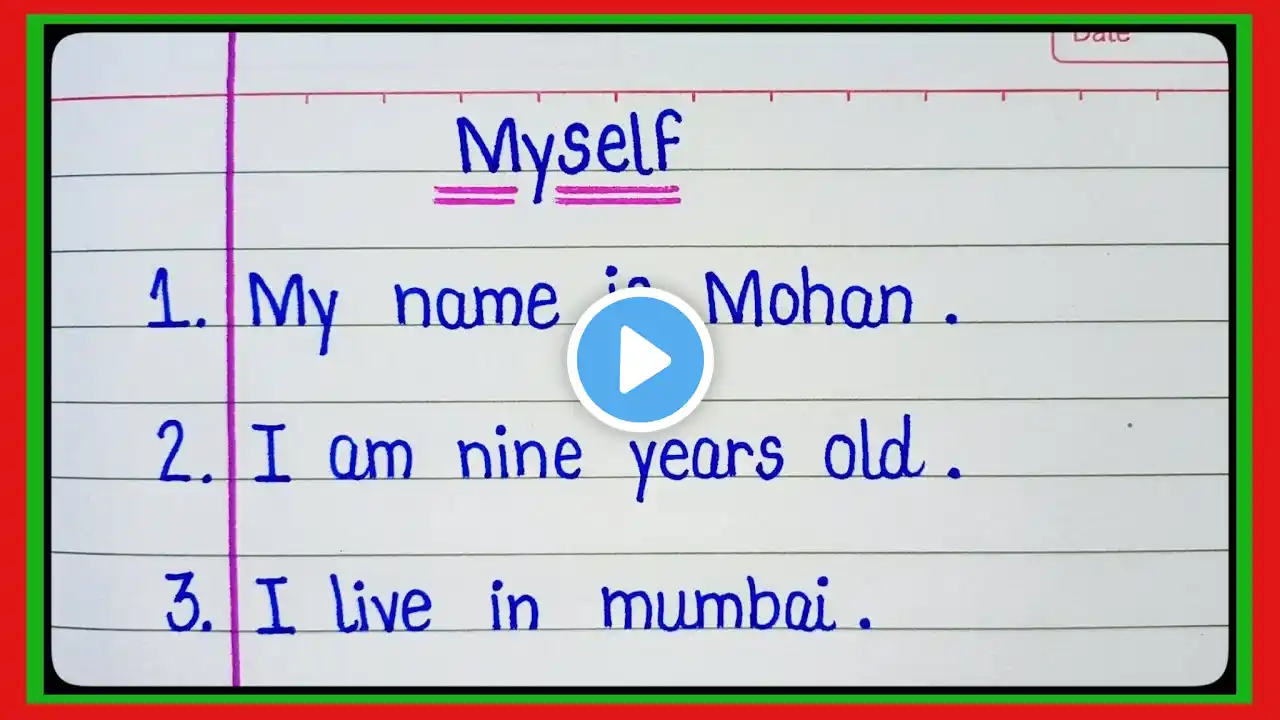 Date
Myself
1. My name is Mohan .
2. I am nine years old .
3. I live in mumbai .